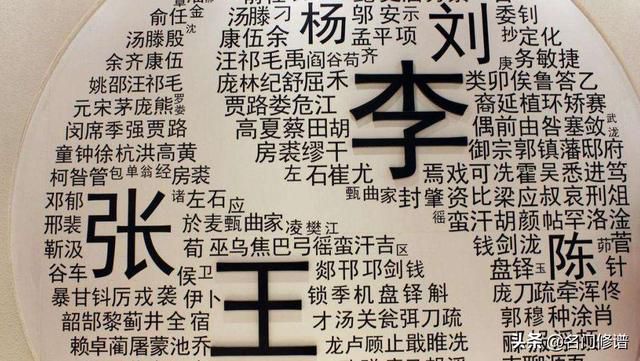 俞任金
汤滕刁
杨
邬安示
刘
委钊
汤滕殷
沈
康伍余
孟平项
抄定化
余齐康伍
汪祁毛禹阎谷荀齐
庚务敏捷
姚邵汪祁毛
庞林纪舒屈禾
李
类卯俟鲁答乙
元宋茅庞熊罗娄
贾路娄危江
裔延植环矫赛
闵席季强贾路
高夏蔡田胡
偶前由昝塞敛
武泷
童钟徐杭洪高黄
房裘缪干
御宗郭镇藩邸府
柯昝管包单翁经房裘
左石崔尤
焉戏可冼霍吴悉进笃
邓郁
诸左石应
甄曲家封肇资比梁应叔哀刑俎
邢裴
张
於麦甄曲家凌樊江
徭蛮汗胡颜帖罕洛淦
靳汲
荀巫乌焦巴弓徭蛮汗吉区
钱剑泷
陈
茆菅
谷车
侯卫
王
郯邗邛剑钱
盘铎玉
针
暴甘钭厉戎裘伊卜
锁季机盘铎斛
庞刀疏牵浑佟
韶郜黎蓟井全宿
才汤关瓮弭刀疏
郭穆种涂肖
赖卓蔺屠蒙池乔
龙卢顾止戢睢冼
头条@名门修谱